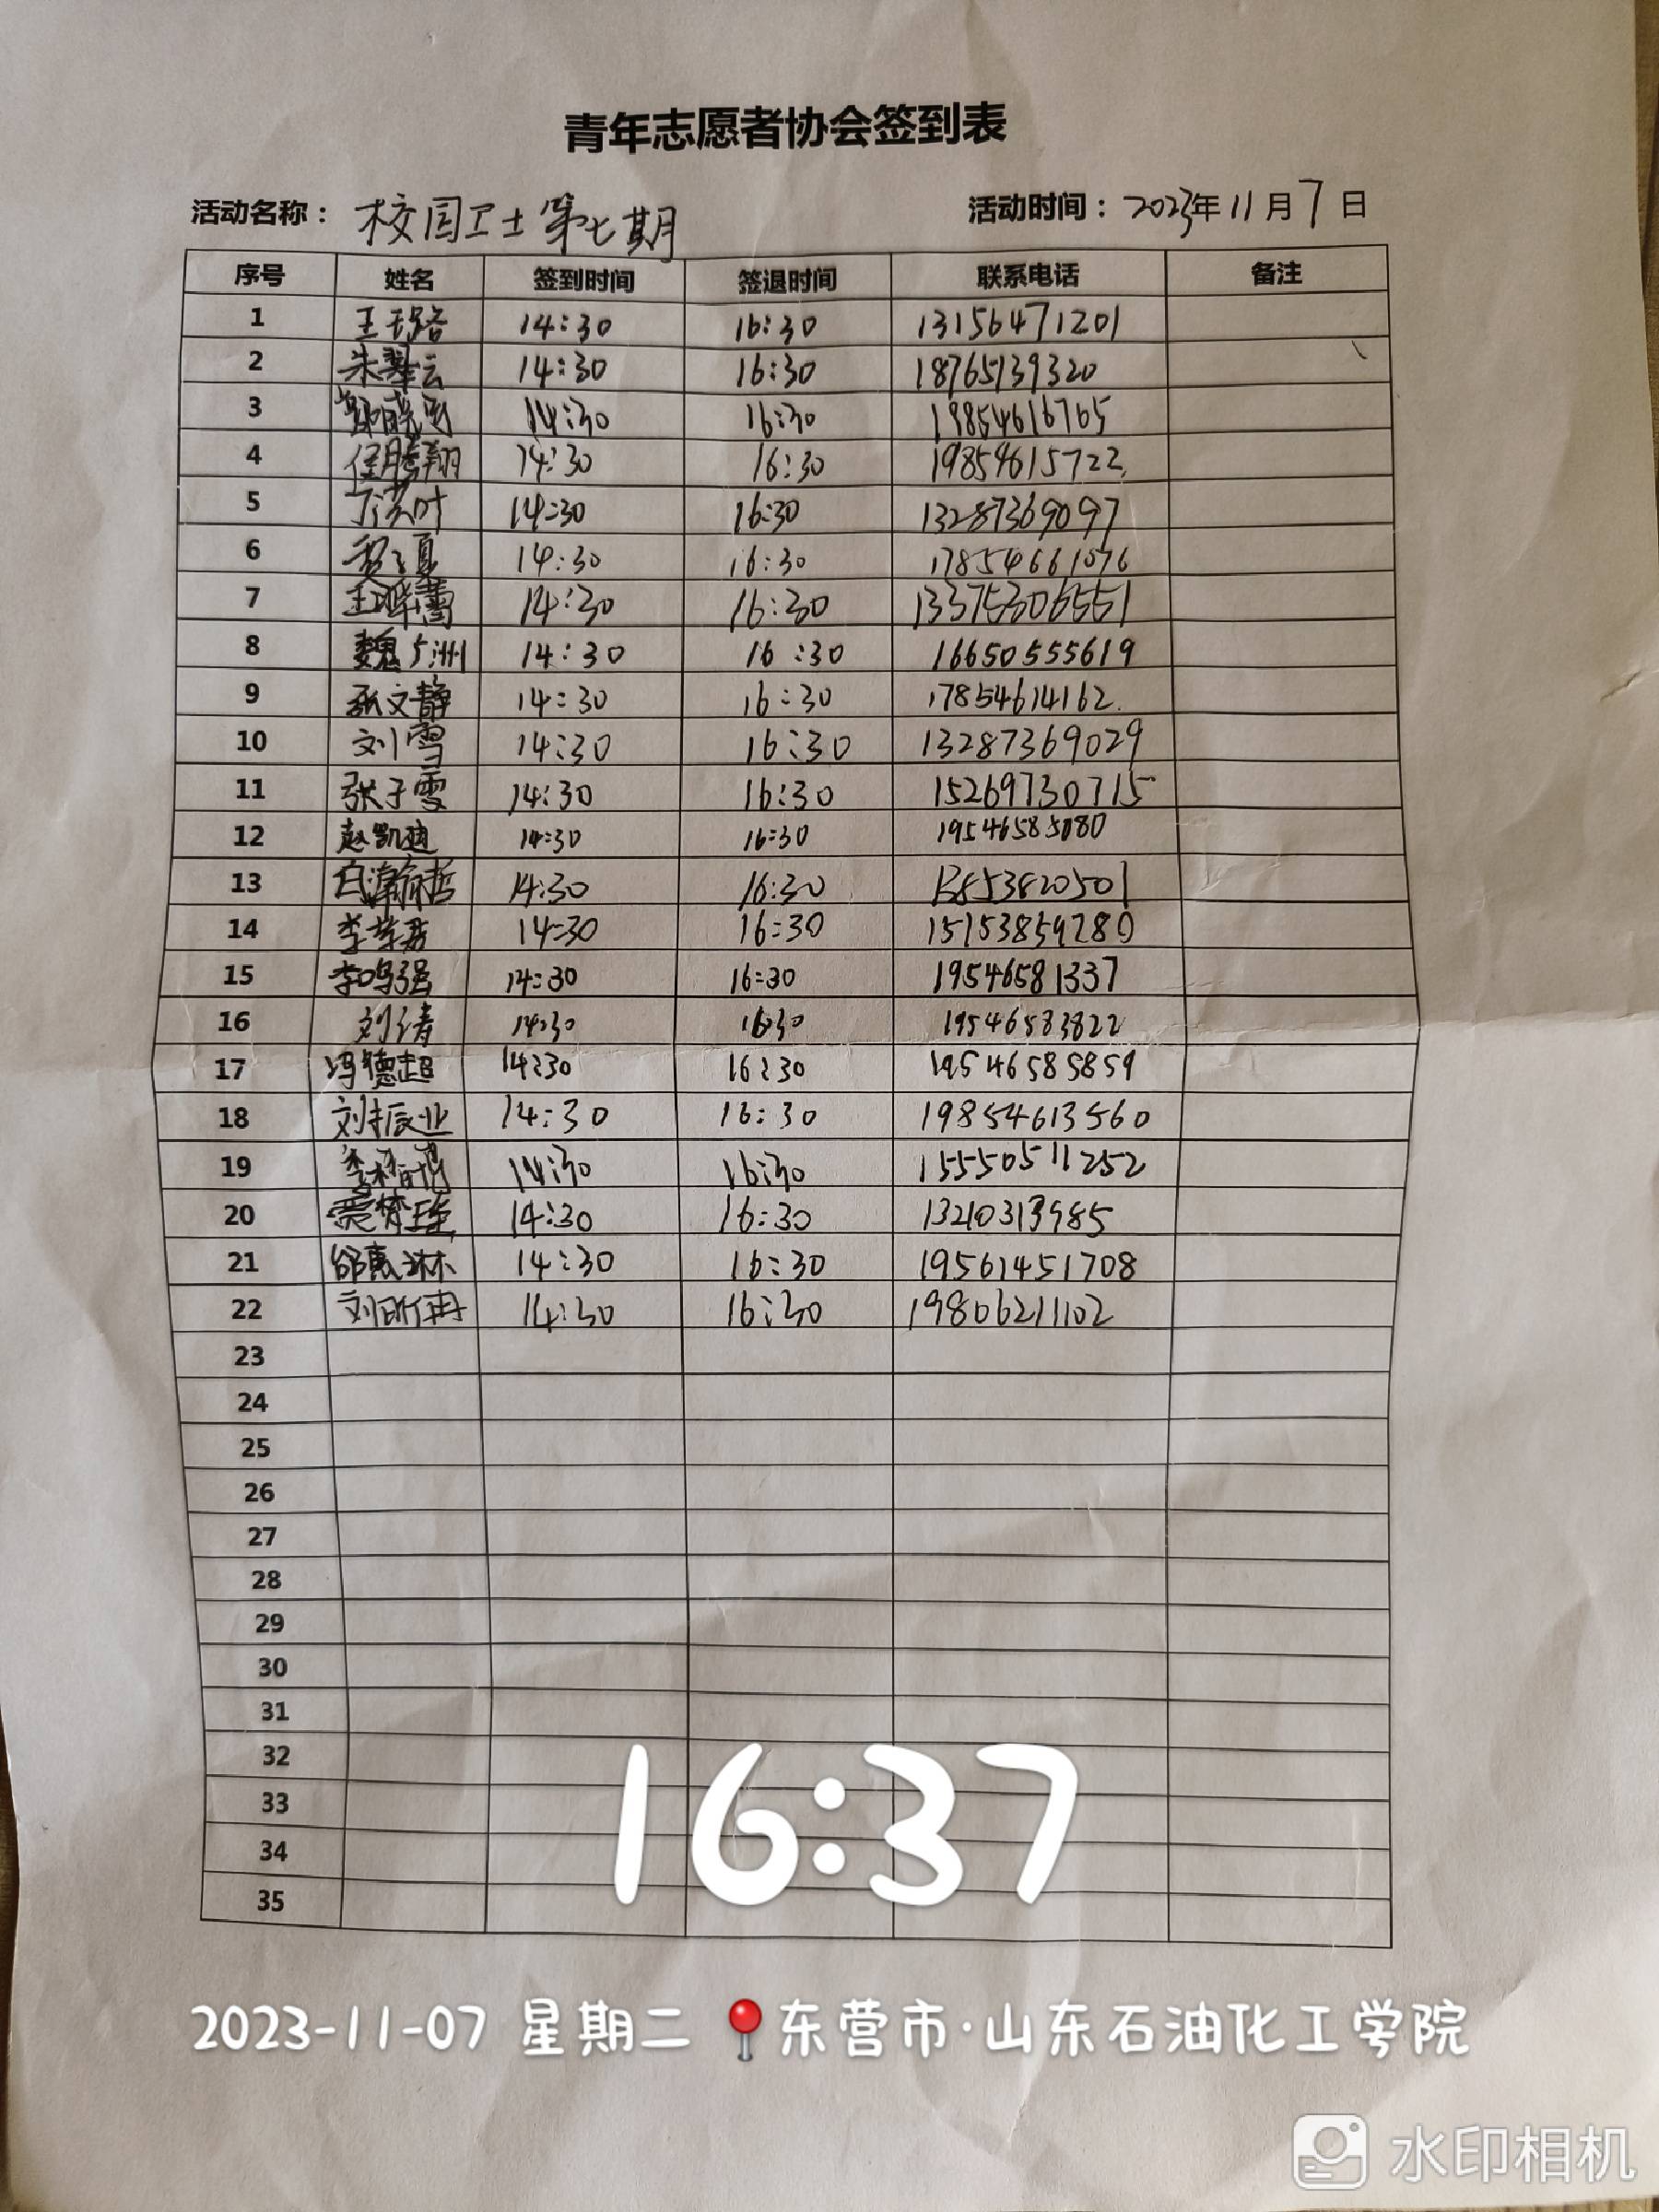 青年志愿者协会签到表
活动名称： 校园卫士第七期 活动时间： 2023年11月7日
序号 姓名 签到时间 签退时间 联系电话 备注
1 14:30 16:30 13156471201
2 朱翠云 14:30 16:30 18765139320
3 14:30 16:30 19854616765
4 任腾翔 14:30 16:30 19854615722
5 14:30 16:30 13287369097
6 14:30 16:30 17854661076
7 14:30 16:30 13375306551
8 魏广洲 14:30 16:30 16650555619
9 张文静 14:30 16:30 17854614162
10 刘雪 14:30 16:30 13287369029
11 张子雯 14:30 16:30 15269730715
12 赵凯迪 14:30 16:30 19546585080
13 白瀚哲 14:30 16:30
14 14:30 16:30 15153859280
15 李鸣强 14:30 16:30 19546581337
16 刘倩 14:30 16:30 19546583822
17 冯德超 14:30 16:30 19546585859
18 刘振业 14:30 16:30 19854613560
19 14:30 16:30 15550511252
20 14:30 16:30 13210313985
21 邰惠淋 14:30 16:30 19561451708
22 刘昕冉 14:30 16:30 19806211102
23
24
25
26
27
28
29
30
31
32
33
34
35
16:37
2023-11-07 星期二 东营市·山东石油化工学院
水印相机